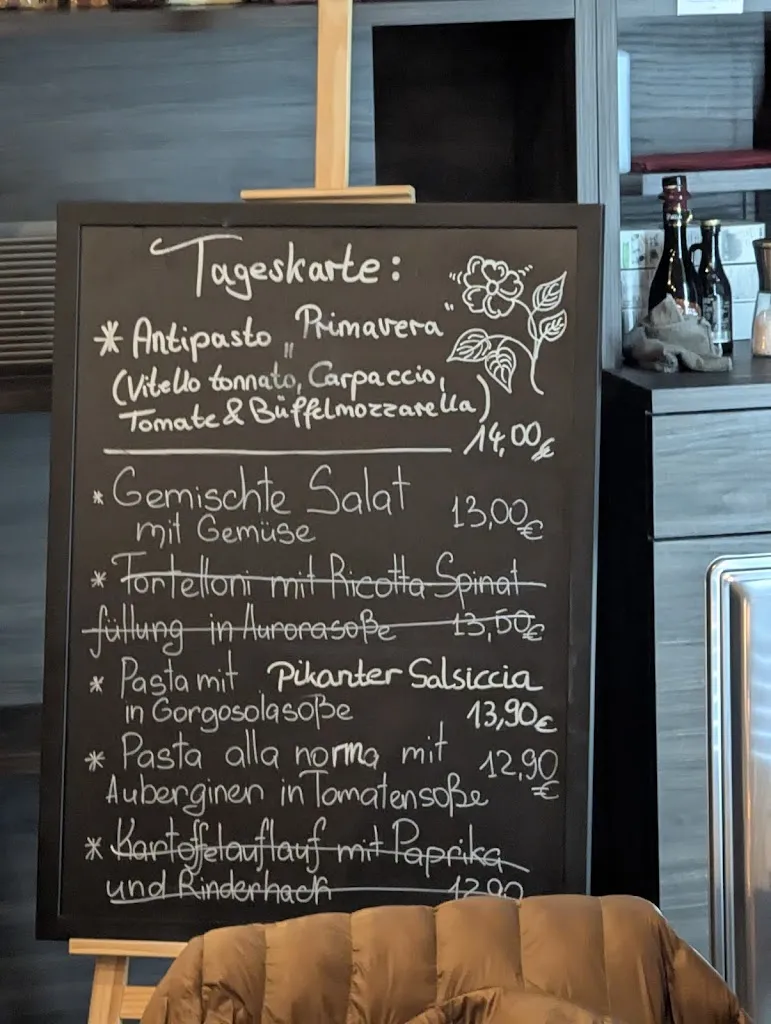 Tageskarte:
* Antipasto „Primavera"
(Vitello tonnato, Carpaccio,
Tomate & Büffelmozzarella)
14,00€
* Gemischte Salat 13,00€
mit Gemüse
* Tortelloni mit Ricotta Spinat
füllung in Aurorasoße 13,50€
* Pasta mit Pikanter Salsiccia
in Gorgosolasoße 13,90€
* Pasta alla norma mit 12,90€
Auberginen in Tomatensoße
* Kartoffelauflauf mit Paprika
und Rinderhack 12,90